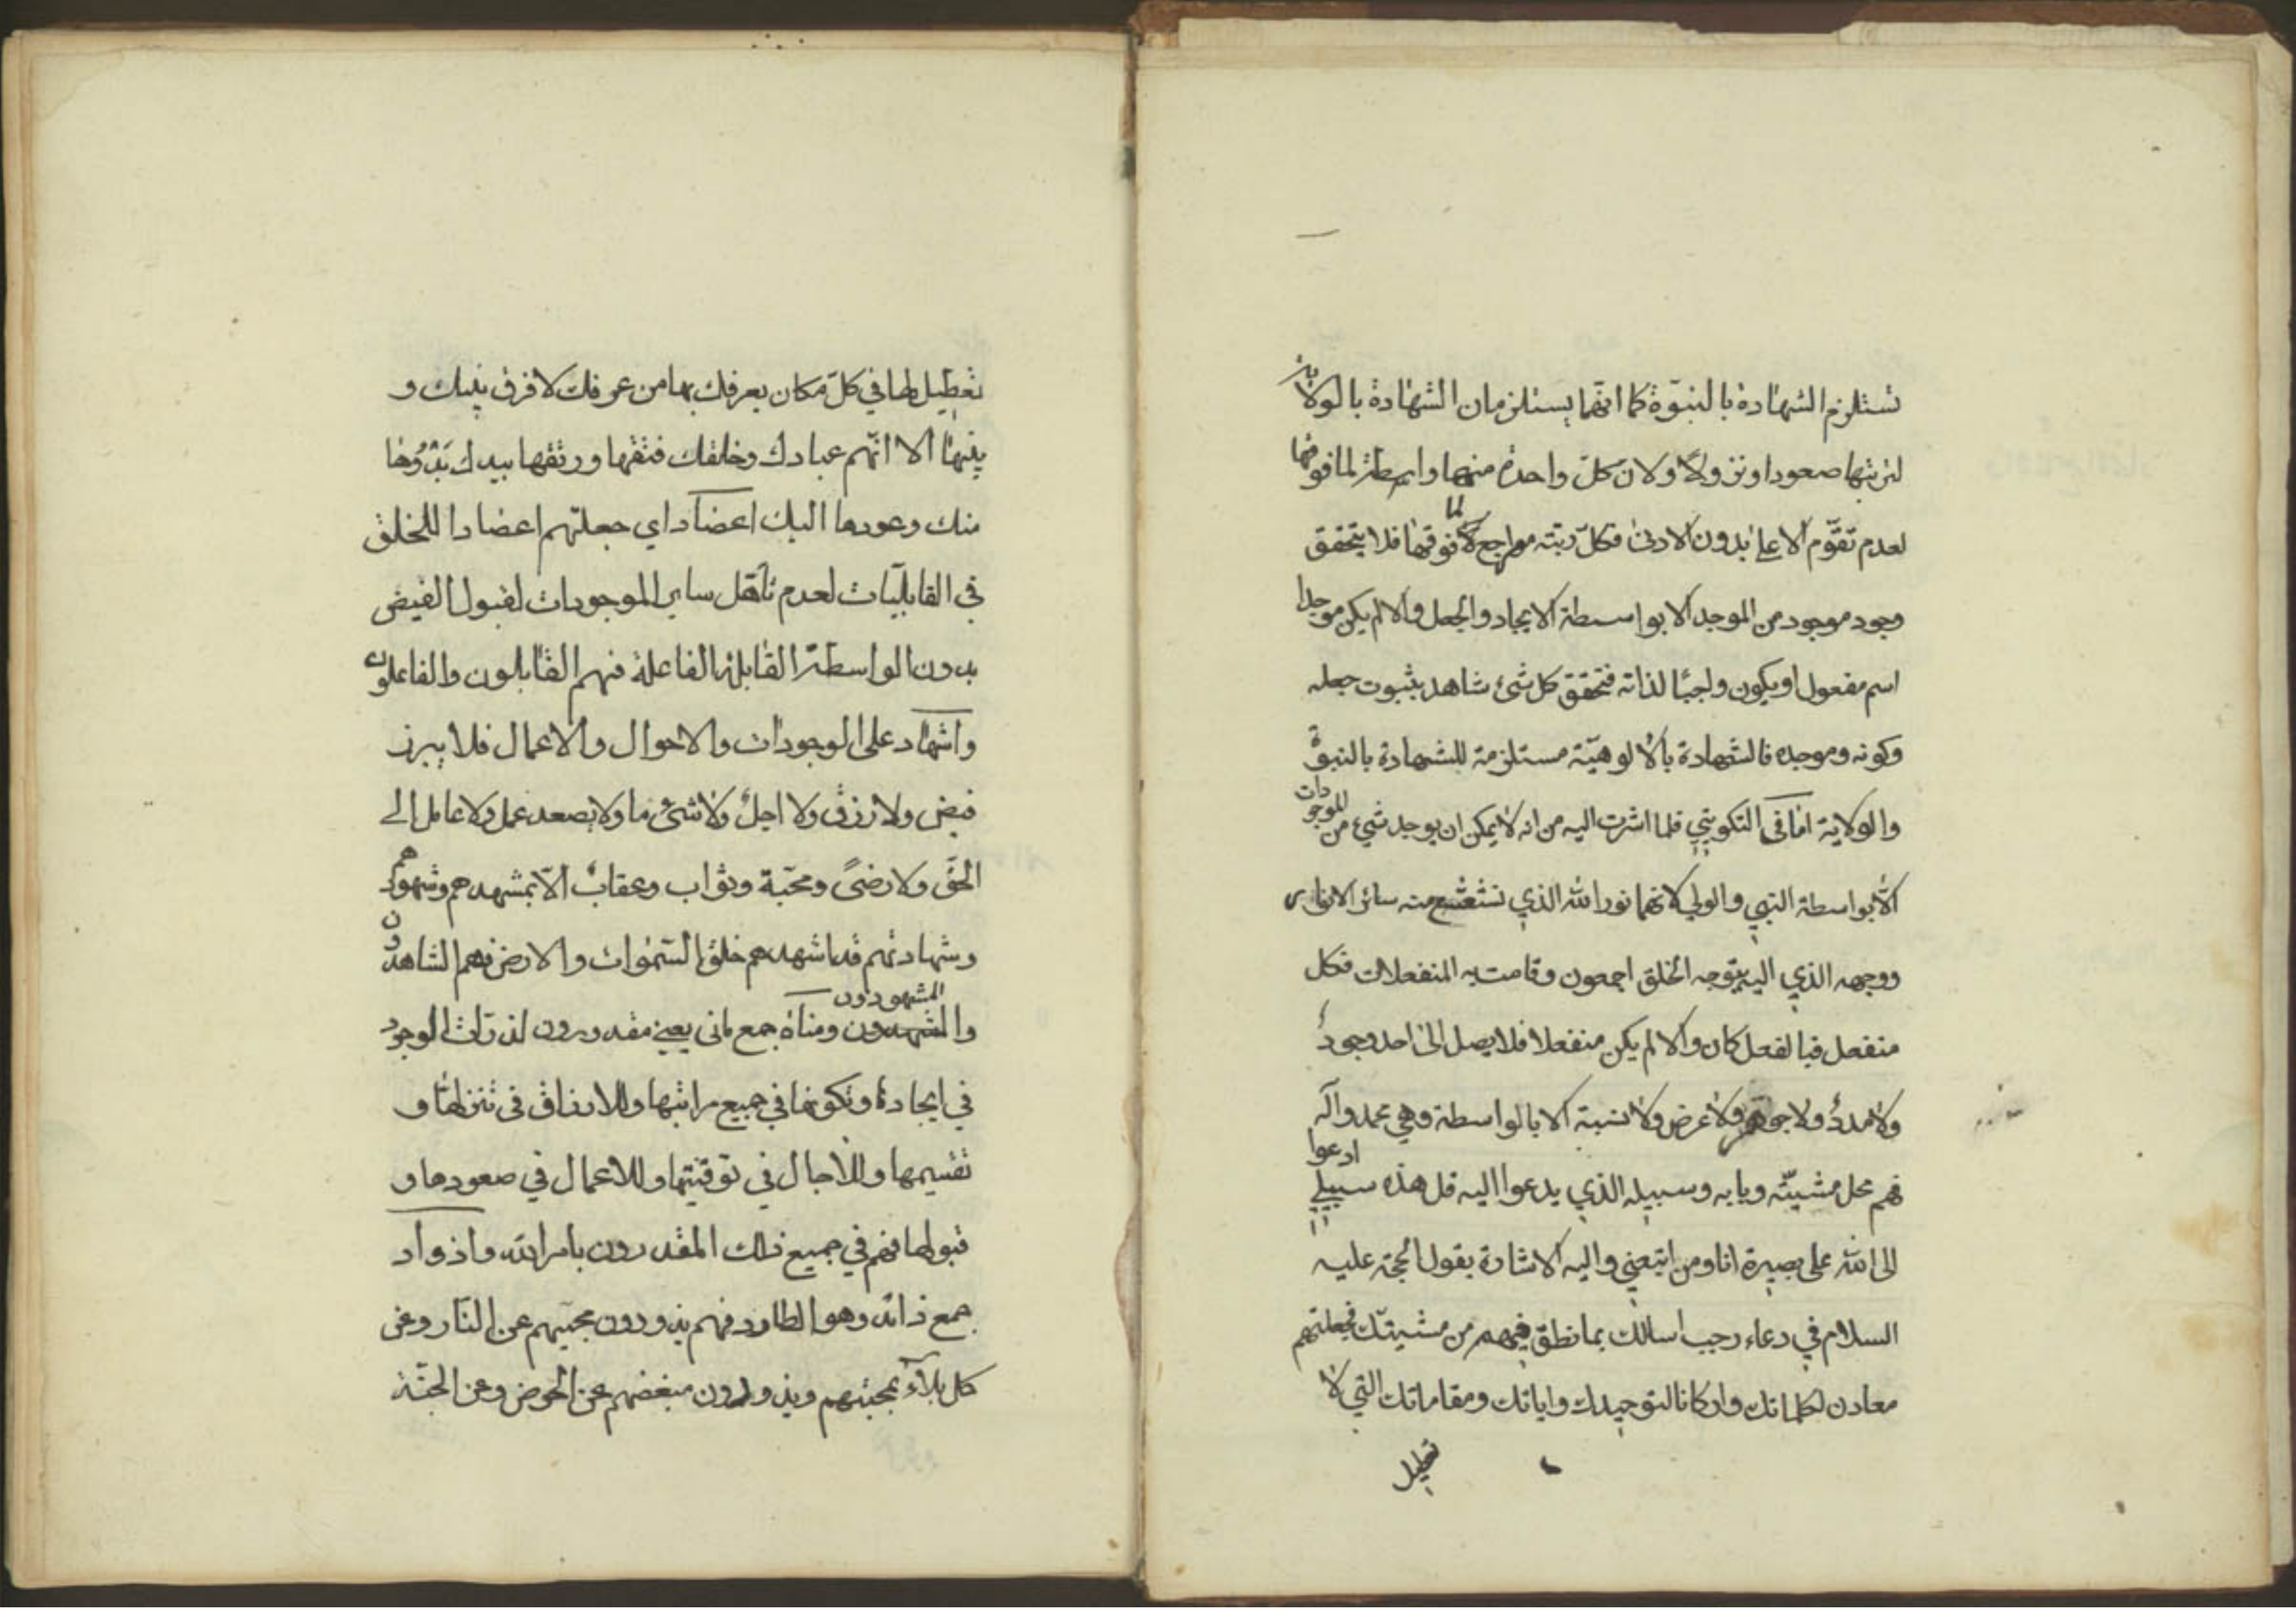 تستلزم الشهادة بالنبوّة كما انهما يستلزمان الشهادة بالولاية
لترتبها صعودا ونزولاً ولان كلّ واحدة منهما واسطة لما فوقها
لعدم تقوّم الاعلى بدون الادنى فكلّ رتبته مراجع لما فوقها فلا يتحقق
وجود موجود من الموجد الا بواسطة الايجاد والجعل والا لم يكن موجدا
اسم مفعول او يكون واجبًا لذاته فتحقق كل شئ شاهد بثبوت جعله
وكونه وموجده فالشهادة بالالوهيّة مستلزمة للشهادة بالنبوة
والولاية امّا فى التكويني فلما اشرت اليه من انه لا يمكن ان يوجد شيء من الموجودات
الّا بواسطة النبي والولي لانهما نور الله الذي تشعشع منه سائر الانوار
ووجهه الذي اليه يتوجه الخلق اجمعون وقامت به المنفعلات فكل
منفعل فبالفعل كان والا لم يكن منفعلا فلا يصل الى احد وجودٌ
ولا مددٌ ولا جوهر ولا عرض ولا نسبة الا بالواسطة وهي محمد وآله
فهم محل مشيّته وبابه وسبيله الذي يدعوا اليه قل هذه سبيلي ادعوا
الى الله على بصيرة انا ومن اتبعني واليه الاشارة بقول الحجة عليه
السلام في دعاء رجب اسالك بما نطق فيهم من مشيتك فجعلتهم
معادن لكلماتك واركانا لتوحيدك واياتك ومقاماتك التي لا
تعطيل
تعطيل لها في كلّ مكان يعرفك بها من عرفك لا فرق بينك و
بينها الا انّهم عبادك وخلقك فتقها ورتقها بيدك بَدْؤُها
منك وعودها اليك اعضاد اي جعلتهم اعضادا للخلق
في القابليّات لعدم تأهّل ساير الموجودات لقبول الفيض
بدون الواسطة القابلة الفاعلة فهم القابلون والفاعلون
واشهاد على الموجودات والاحوال والاعمال فلا يبرز
فيض ولا رزق ولا اجلٌ ولا شئ ما ولا يصعد عمل ولا عامل الى
الحقّ ولا رضىً ومحبّة وثواب وعقابٌ الّا بمشهدهم وشهودهم
وشهادتهم قد اشهدهم خلق السّموات والارض فهم الشاهدون
والمشهودون ومناة جمع مانى يعني مقدرون لذرّات الوجود
في ايجاده وتكونها في جميع مراتبها وللارزاق في تنزلها و
تقسيمها وللآجال في توقيتها وللاعمال في صعودها و
قبولها فهم في جميع ذلك المقدرون بامر الله واذواد
جمع ذائد وهو الطارد فهم يذودون محبيهم عن النّار وعن
كل بلآء بمحبتهم ويذودون مبغضهم عن الحوض وعن الجنّة